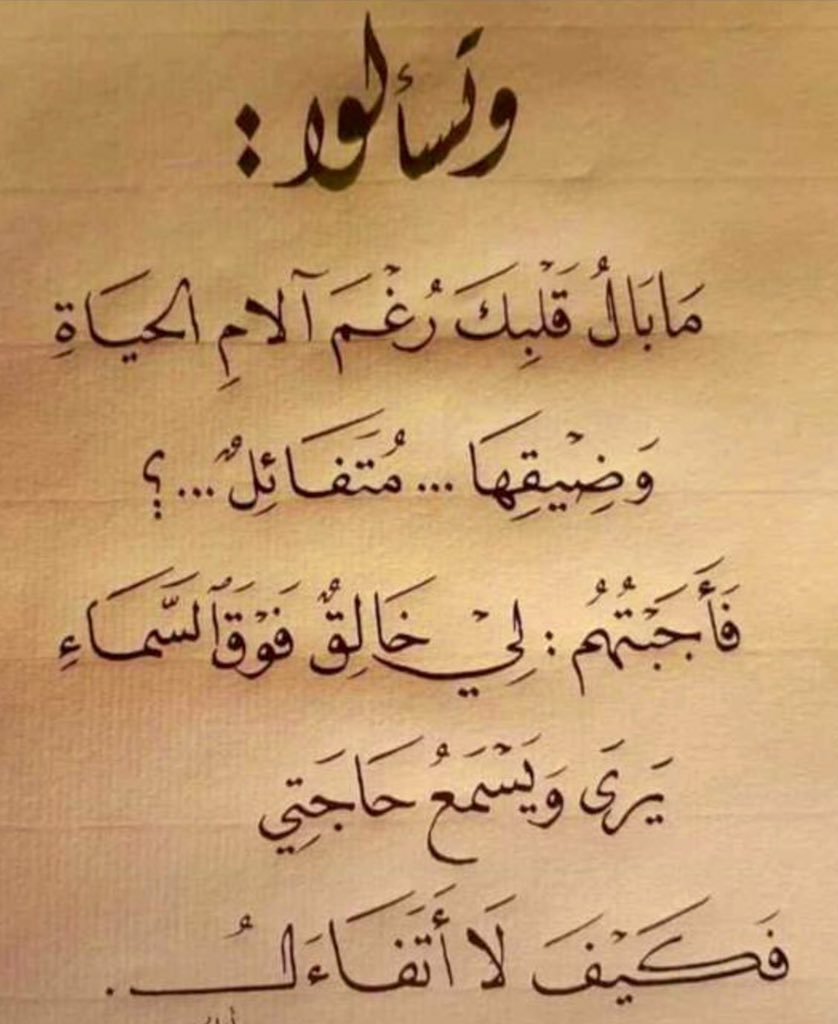 وتسألوا :
مَا بَالُ قَلْبِكَ رُغْمَ آلامِ الحَيَاةِ
وَضِيْقِهَا ... مُتَفَائِلٌ ... ؟
فَأَجَبْتُهُمُ : لِيْ خَالِقٌ فَوْقَ ٱلسَّمَاءِ
يَرَى وَيَسْمَعُ حَاجَتِي
فَكَيْفَ لَا أَتَفَاءَلُ .